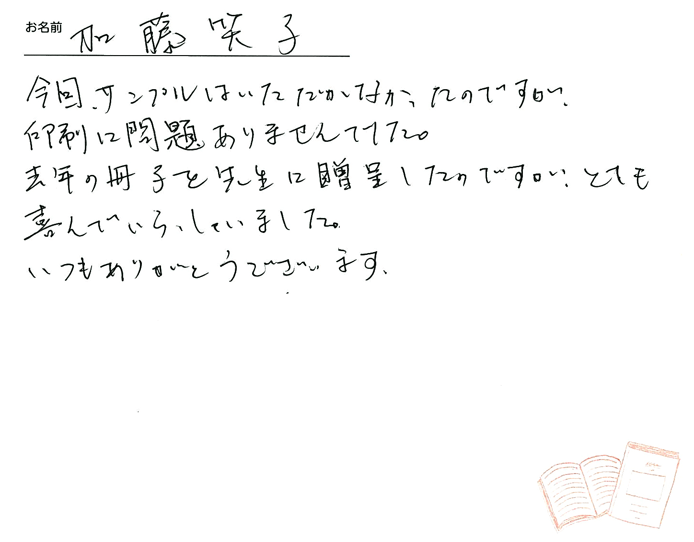 お名前 加藤笑子
今回、サンプルはいただかなかったのですが、
印刷に問題ありませんでした。
去年の冊子を先生に贈呈したのですが、とても
喜んでいらっしゃいました。
いつもありがとうございます。